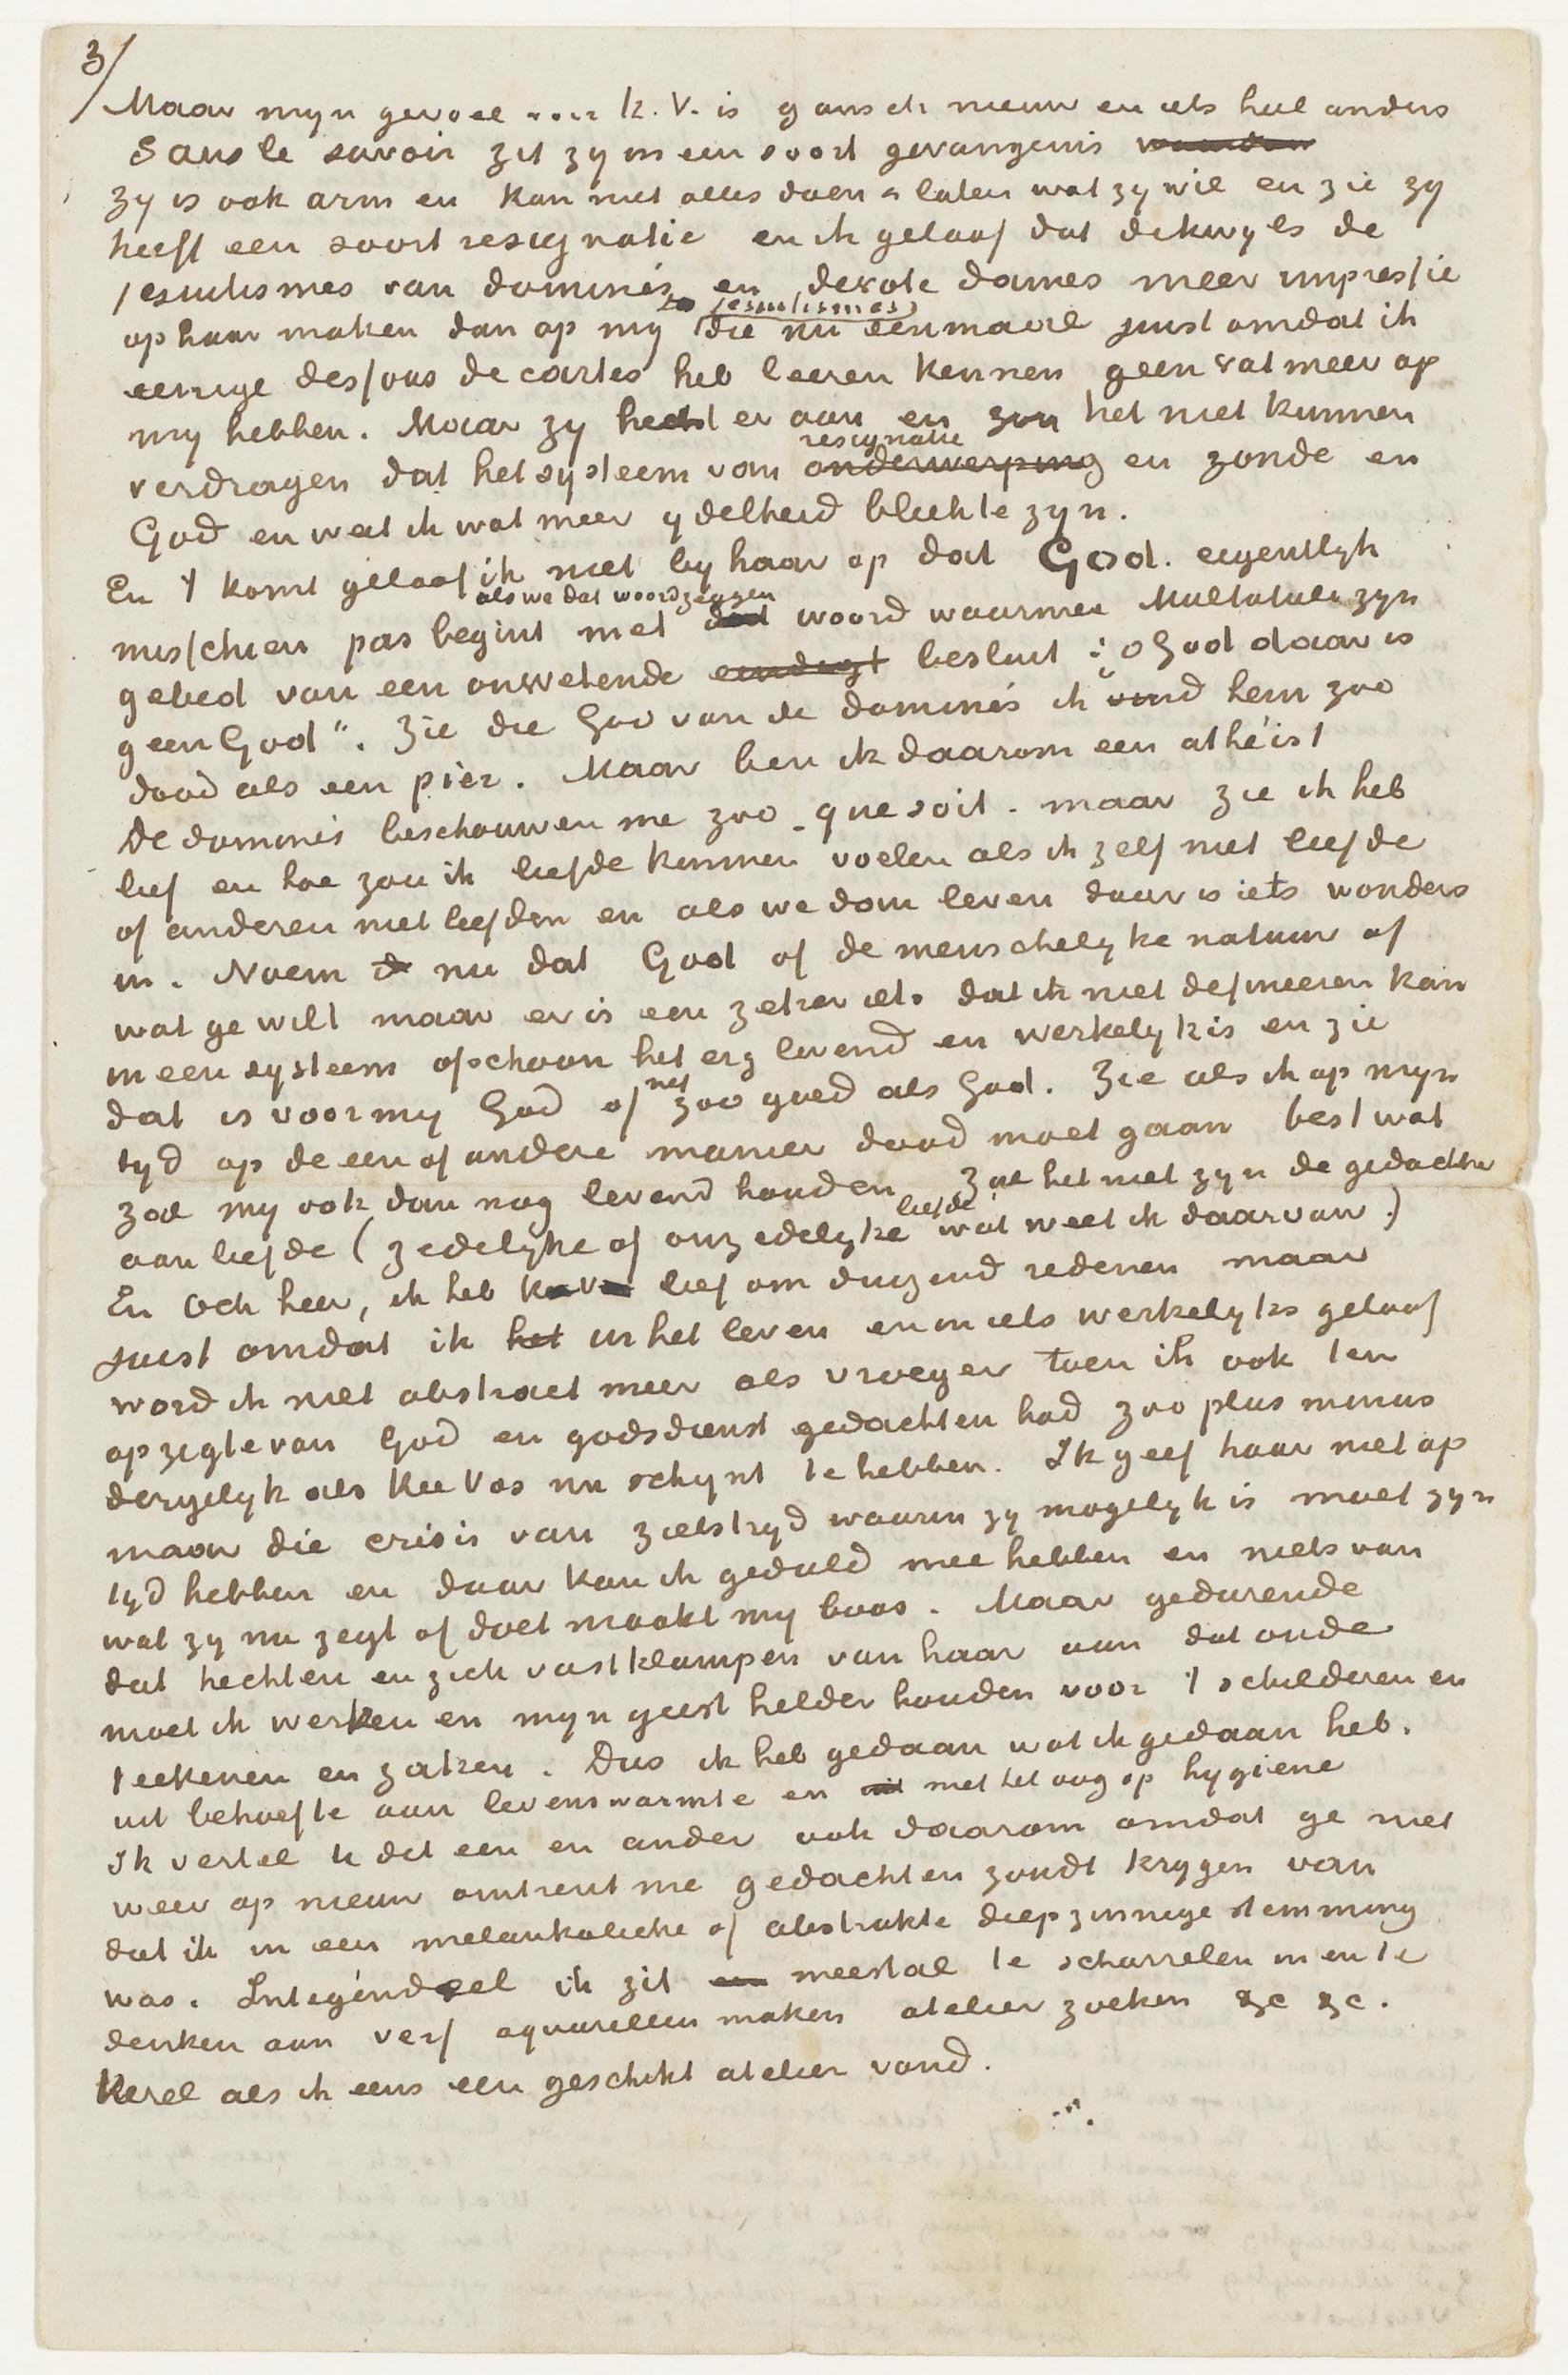 3/
Maar myn gevoel voor K.V. is gansch nieuw en iets heel anders
Sans le savoir zit zy in een soort gevangenis
zy is ook arm en kan niet alles doen & laten wat zy wil en zie zy
heeft een soort resignatie en ik geloof dat dikwyls de
jesuitismes van dominés en devote dames meer impressie
op haar maken dan op my jesuitismes die nu eenmaal juist omdat ik
eenige dessous de cartes heb leeren kennen geen vat meer op
my hebben. Maar zy hecht er aan en zou het niet kunnen
verdragen dat het systeem van resignatie onderwerping en zonde en
God en weet ik wat meer ydelheid bleekte zyn.
En 't komt geloof ik niet by haar op dat God eigentlyk
misschien pas begint als we dat woord zeggen met dat woord waarmee Multatuli zyn
gebed van een onwetende eindigt besluit : „o God daar is
geen God". Zie die God van de dominés ik vind hem zoo
dood als een pier. Maar ben ik daarom een athéist
De dominés beschouwen me zoo - que soit - maar zie ik heb
lief en hoe zou ik liefde kunnen voelen als ik zelf niet leefde
of anderen niet leefden en als we dan leven daar is iets wonders
in. Noem d nu dat God of de menschelyke natuur of
wat ge wilt maar er is een zeker iets dat ik niet definieeren kan
in een systeem ofschoon het erg levend en werkelyk is en zie
dat is voor my God of net zoo goed als God. Zie als ik op myn
tyd op de een of andere manier dood moet gaan best wat
zal my ook dan nog levend houden zal het niet zyn de gedachte
aan liefde (zedelyke of onzedelyke liefde wat weet ik daarvan.)
En och heer, ik heb K. V. lief om duizend redenen maar
juist omdat ik het in het leven en in iets werkelyks geloof
word ik niet abstract meer als vroeger toen ik ook ten
opzigte van God en godsdienst gedachten had zoo plus minus
dergelyk als Kee Vos nu schynt te hebben. Ik geef haar niet op
maar die crisis van zielstryd waarin zy mogelyk is moet zyn
tyd hebben en daar kan ik geduld mee hebben en niets van
wat zy nu zegt of doet maakt my boos. Maar gedurende
dat hechten en zich vastklampen van haar aan dat oude
moet ik werken en myn geest helder houden voor 't schilderen en
teekenen en zaken. Dus ik heb gedaan wat ik gedaan heb.
uit behoefte aan levenswarmte en met het oog op hygiene
Ik vertel u dit een en ander ook daarom omdat ge niet
weer op nieuw omtrent me gedachten zoudt krygen van
dat ik in een melankolieke of abstrakte diepzinnige stemming
was. Integendeel ik zit en meestal te scharrelen in en te
denken aan verf aquarellen maken atelier zoeken &c &c.
Kerel als ik eens een geschikt atelier vond.